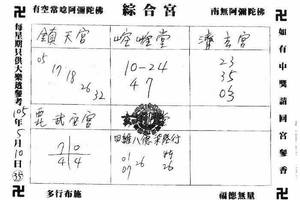 有空常唸阿彌陀佛
綜合宮
南無阿彌陀佛
每星期只供大樂透參考
105年5月10日
鎮天宮
05
17
18
26
32
10-24
47
濟玄宮
23
35
03
武聖宮
70
44
四維八德
01
07
26
26
如有中獎請回宮參香
多行布施
福德無量